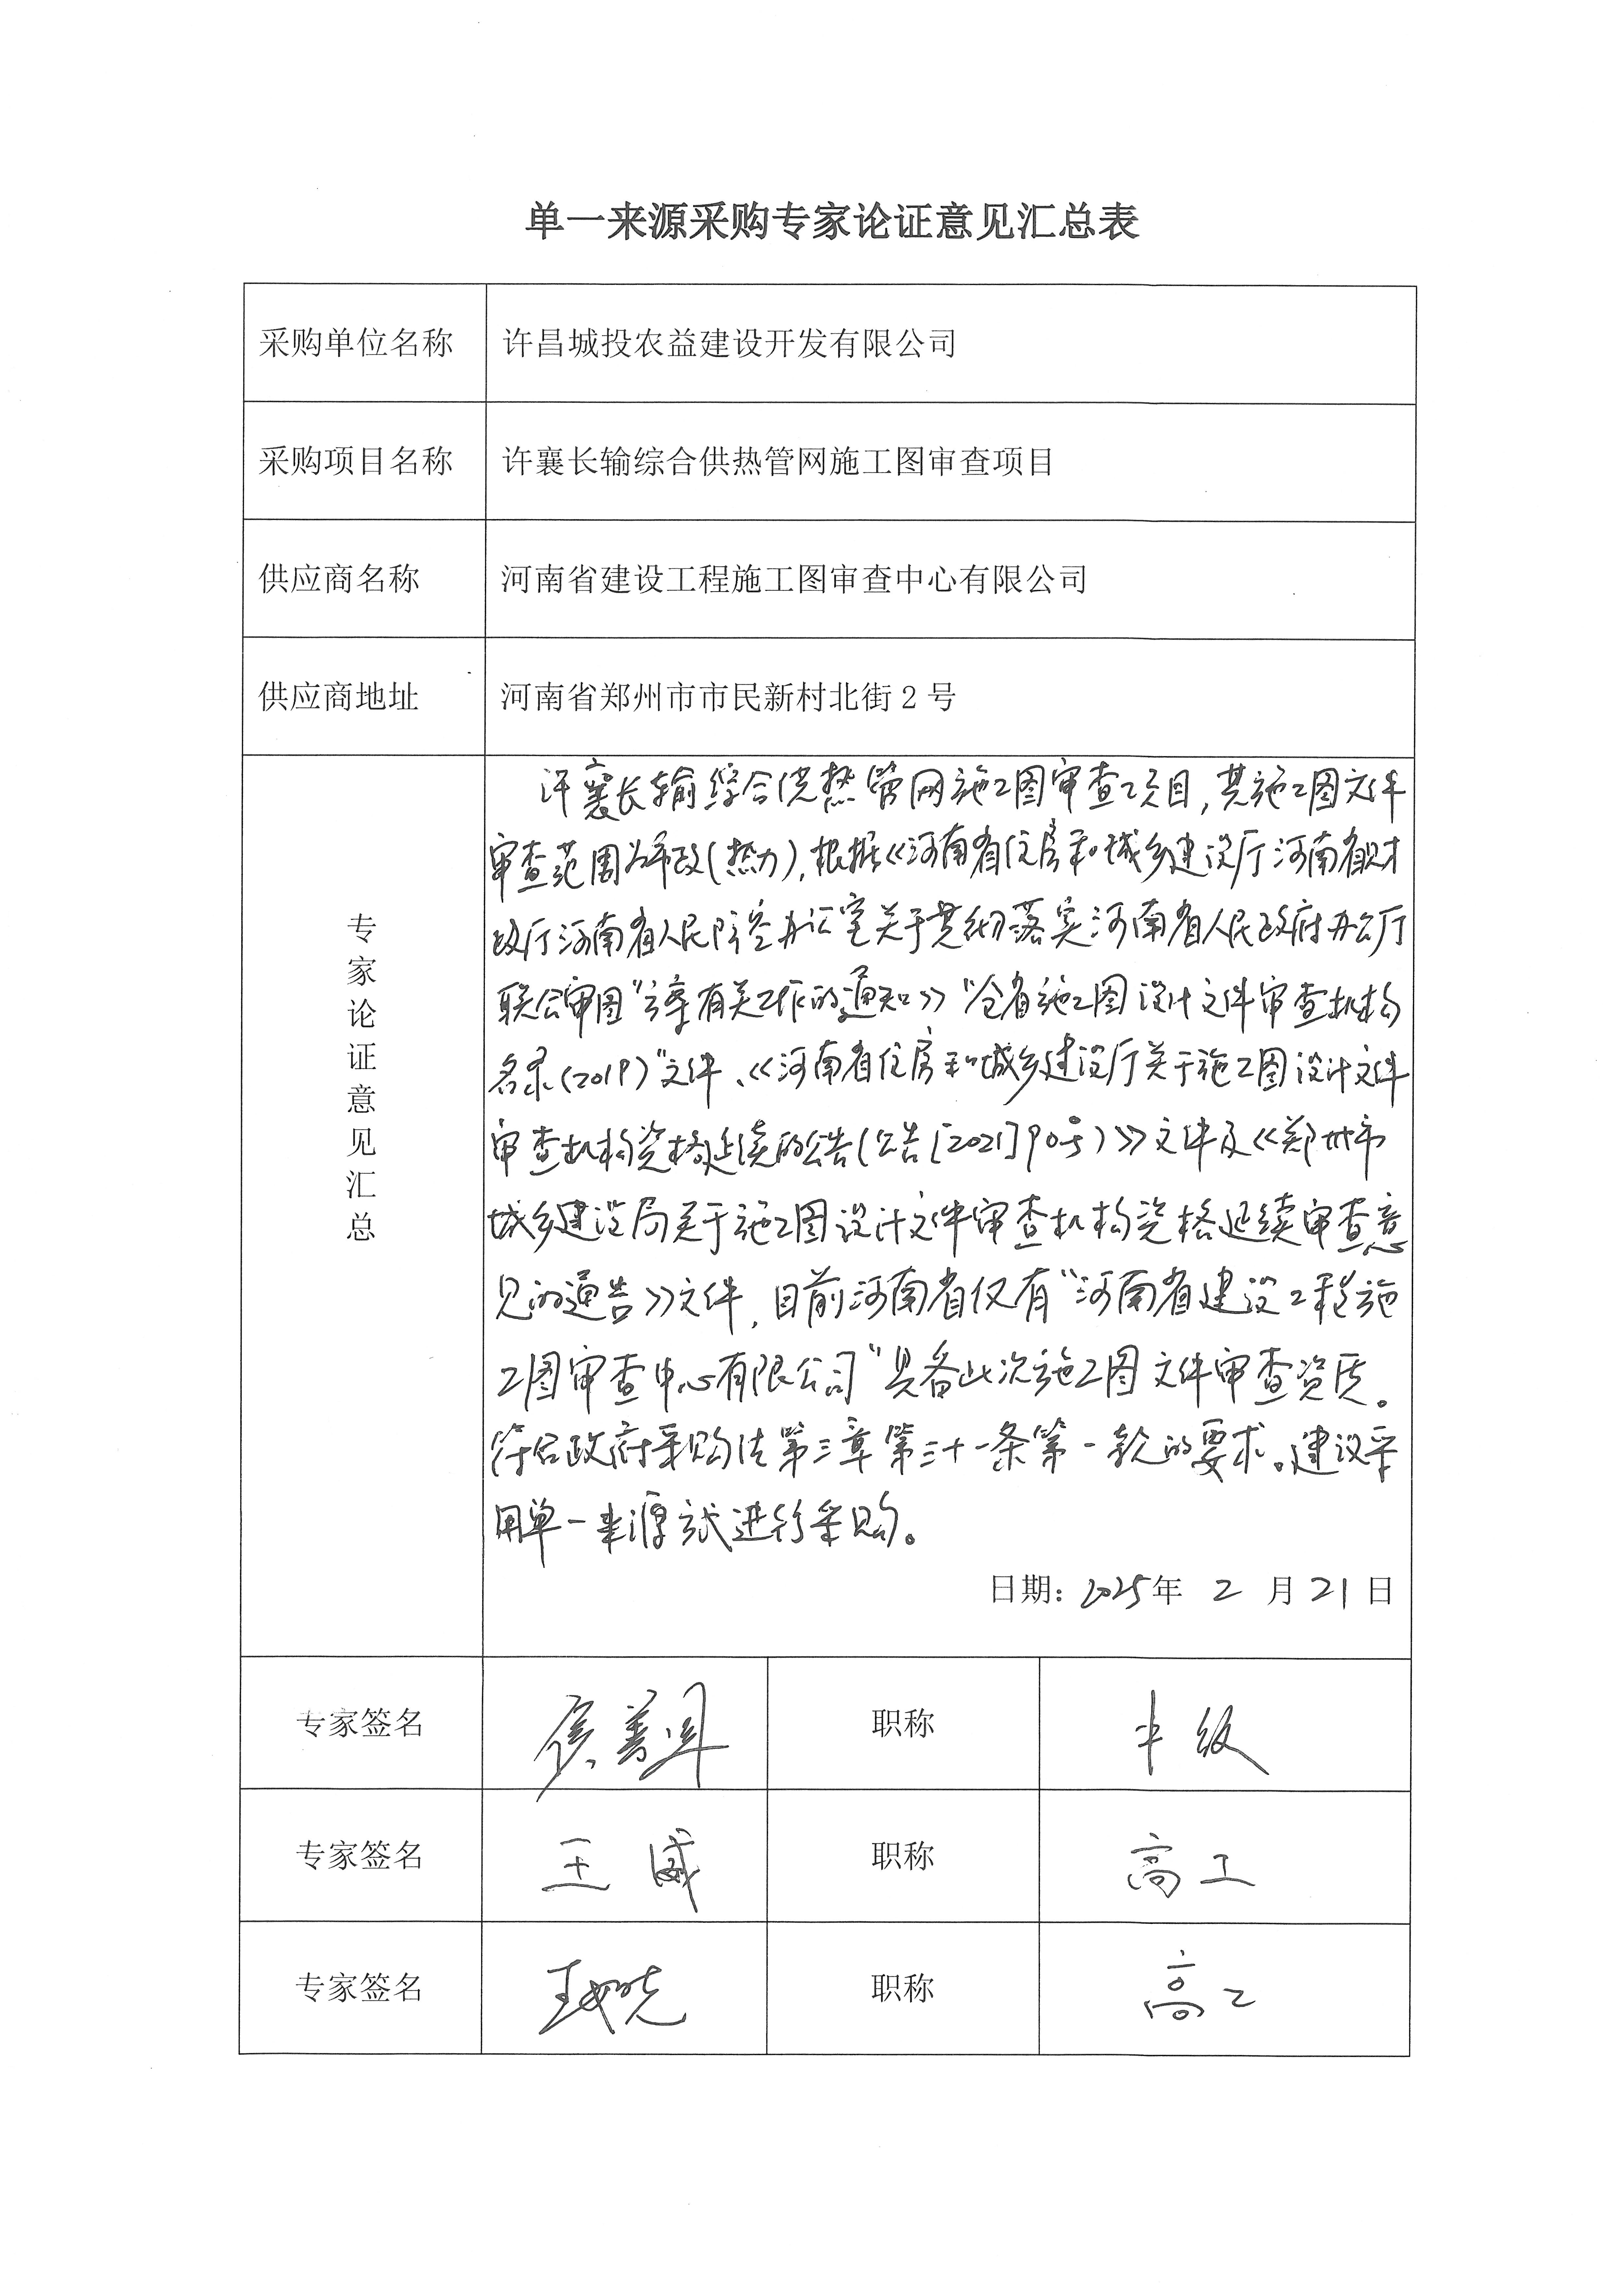 单一来源采购专家论证意见汇总表
采购单位名称 许昌城投农益建设开发有限公司
采购项目名称 许襄长输综合供热管网施工图审查项目
供应商名称 河南省建设工程施工图审查中心有限公司
供应商地址 河南省郑州市市民新村北街2号
专家论证意见汇总
许襄长输综合供热管网施工图审查项目,其施工图文件
审查范围为市政(热力),根据《河南省住房和城乡建设厅河南省财
政厅河南省人民防空办公室关于贯彻落实河南省人民政府办公厅
联合审图"方案有关工作的通知》"全省施工图设计文件审查机构
名录(2019)"文件、《河南省住房和城乡建设厅关于施工图设计文件
审查机构资格延续的公告(公告[2021]90号)》文件及《郑州市
城乡建设局关于施工图设计文件审查机构资格延续审查意
见的通告》文件,目前河南省仅有"河南省建设工程施
工图审查中心有限公司"具备此次施工图文件审查资质。
符合政府采购法第三章第三十一条第一款的要求。建议采
用单一来源方式进行采购。
日期:2025年 2 月 21 日
专家签名 职称 中级
专家签名 王威 职称 高工
专家签名 职称 高工